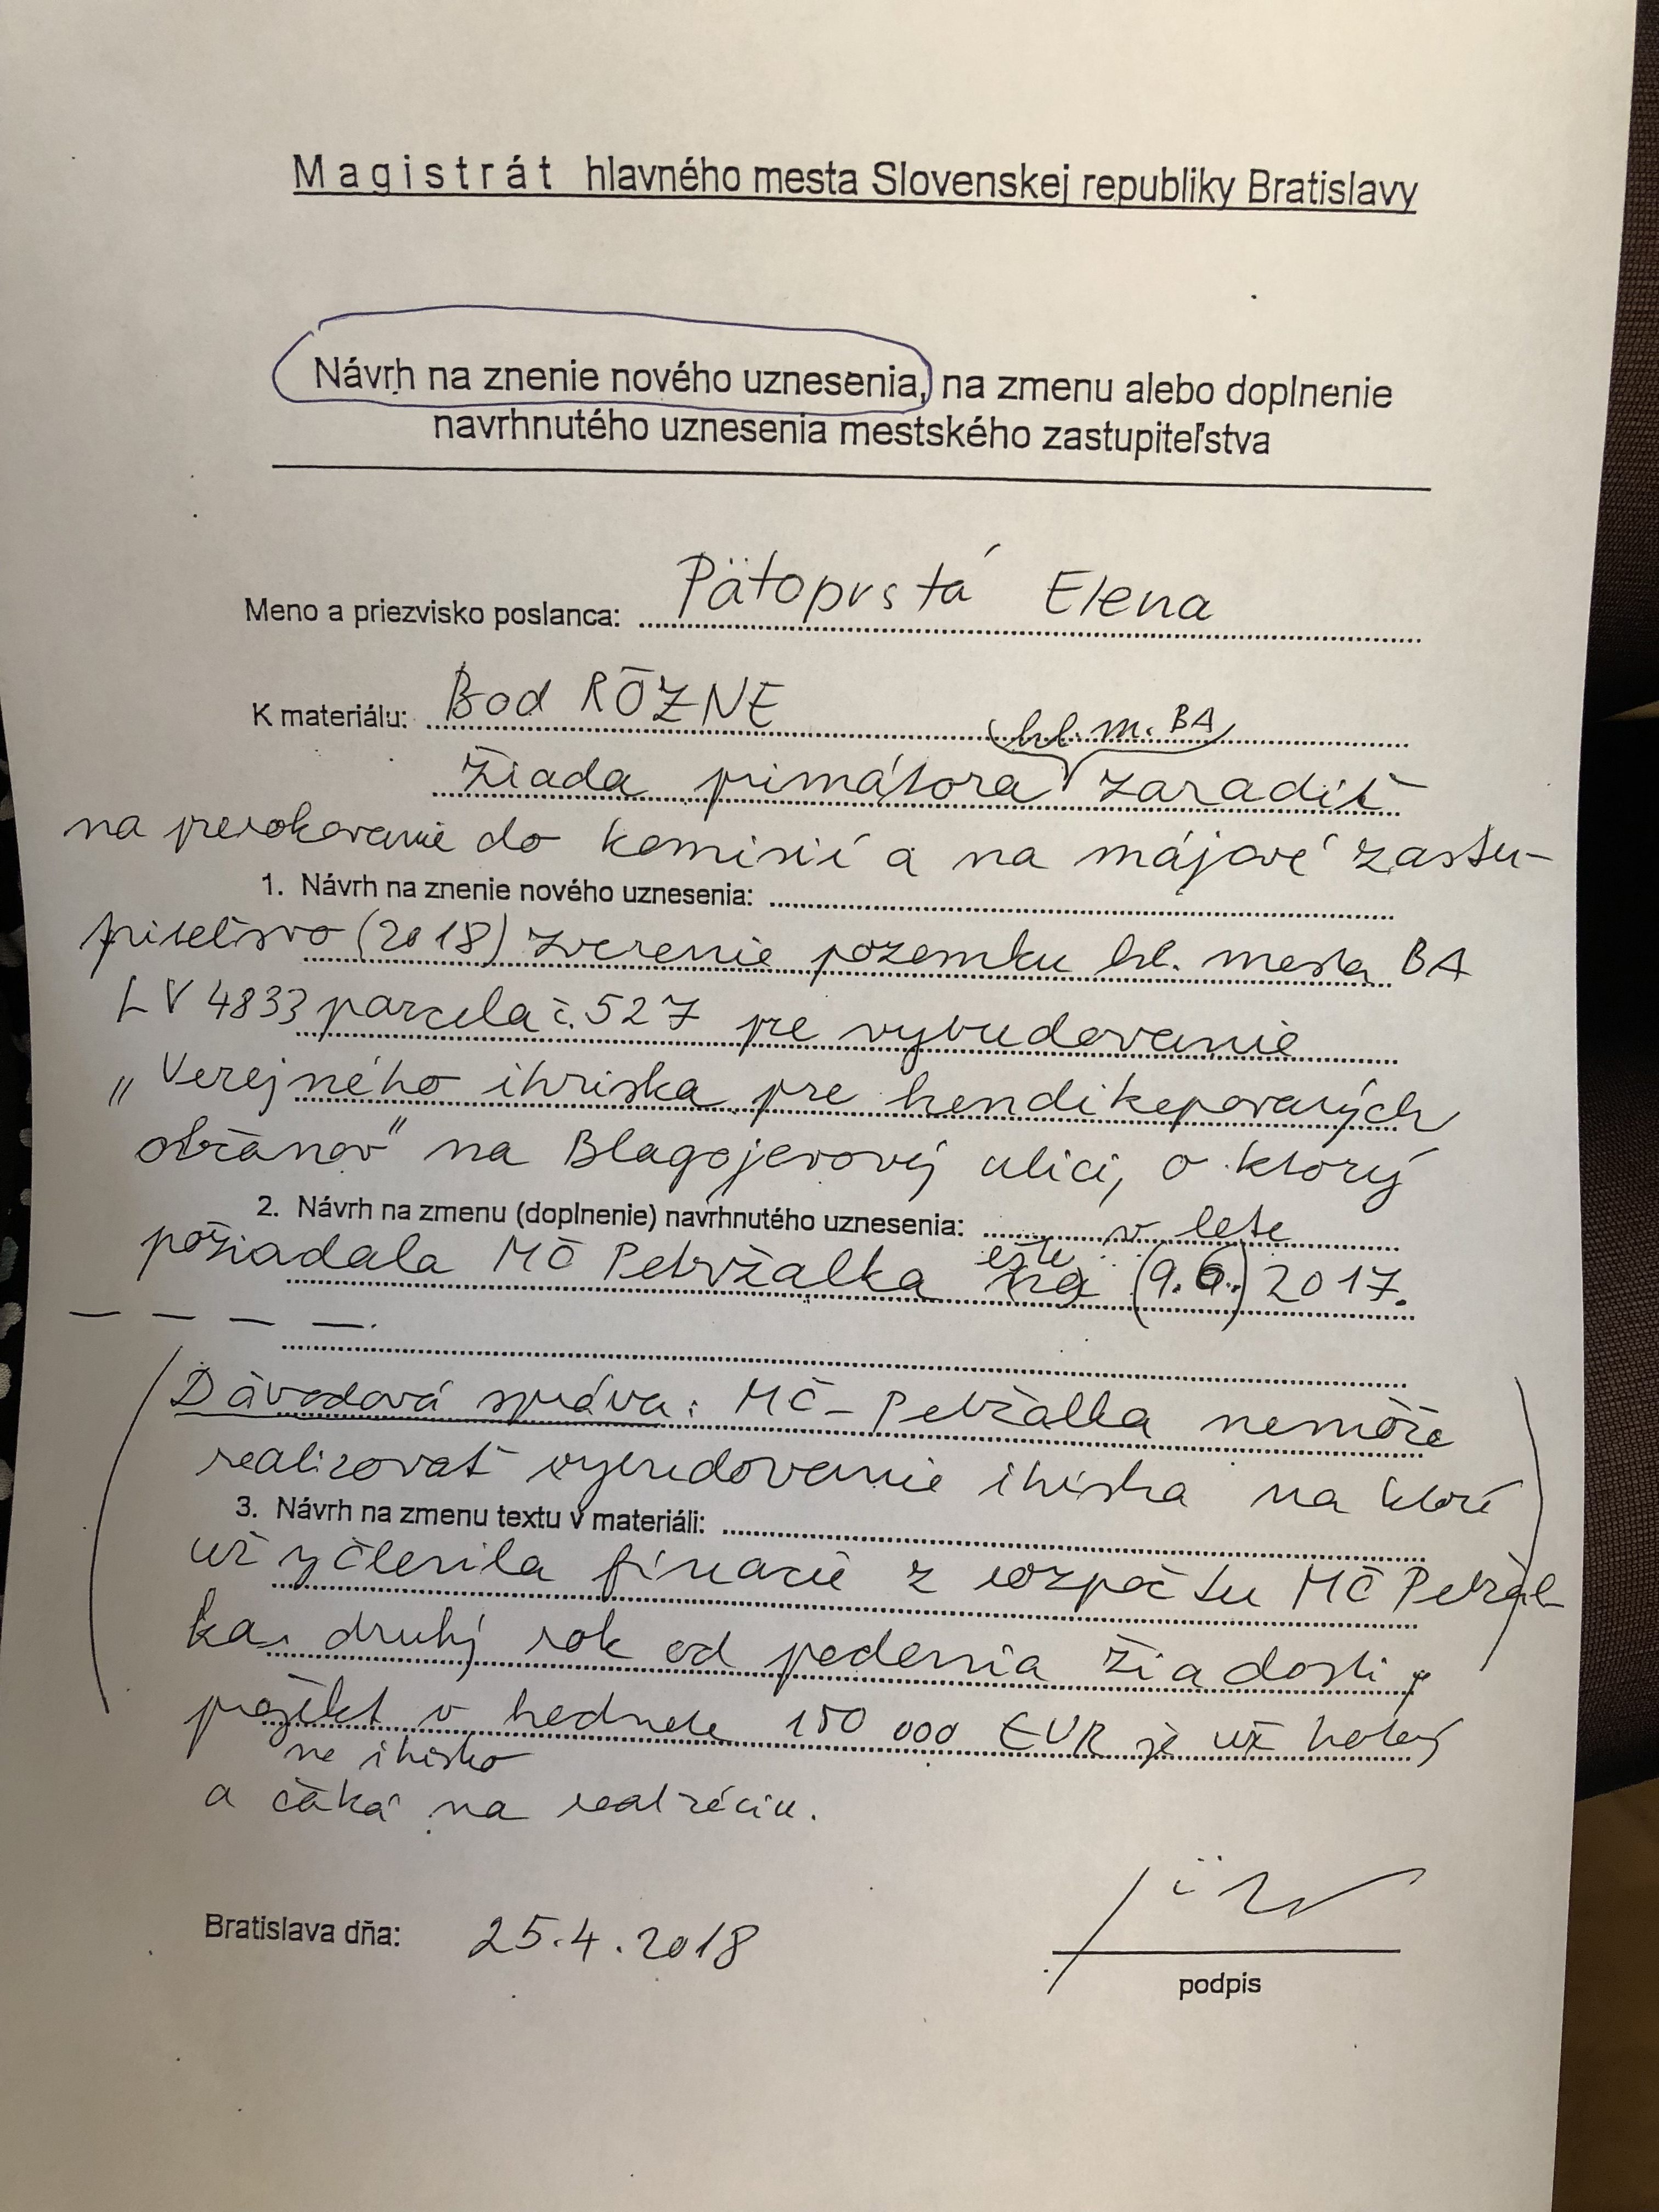 Magistrát hlavného mesta Slovenskej republiky Bratislavy
Návrh na znenie nového uznesenia, na zmenu alebo doplnenie
navrhnutého uznesenia mestského zastupiteľstva
Meno a priezvisko poslanca: Pätoprstá Elena
K materiálu: Bod RÔZNE
hl. m. BA
Žiada primátora zaradiť
na prerokovanie do komisií a na májové zastu-
1. Návrh na znenie nového uznesenia:
piteľstvo (2018) zverenie pozemku hl. mesta BA
LV 4833 parcela č. 527 pre vybudovanie
„Verejného ihriska pre hendikepovaných
občanov" na Blagojevovej ulici, o ktorý
2. Návrh na zmenu (doplnenie) navrhnutého uznesenia: v lete
ešte
požiadala MČ Petržalka (9.6.) 2017.
Dôvodová správa: MČ - Petržalka nemôže
realizovať vybudovanie ihriska na ktoré
3. Návrh na zmenu textu v materiáli:
už vyčlenila financie z rozpočtu MČ Petržal-
ka druhý rok od podania žiadosti,
projekt v hodnote 150 000 EUR je už hotový
na ihrisko
a čaká na realizáciu.
Bratislava dňa: 25.4.2018
podpis